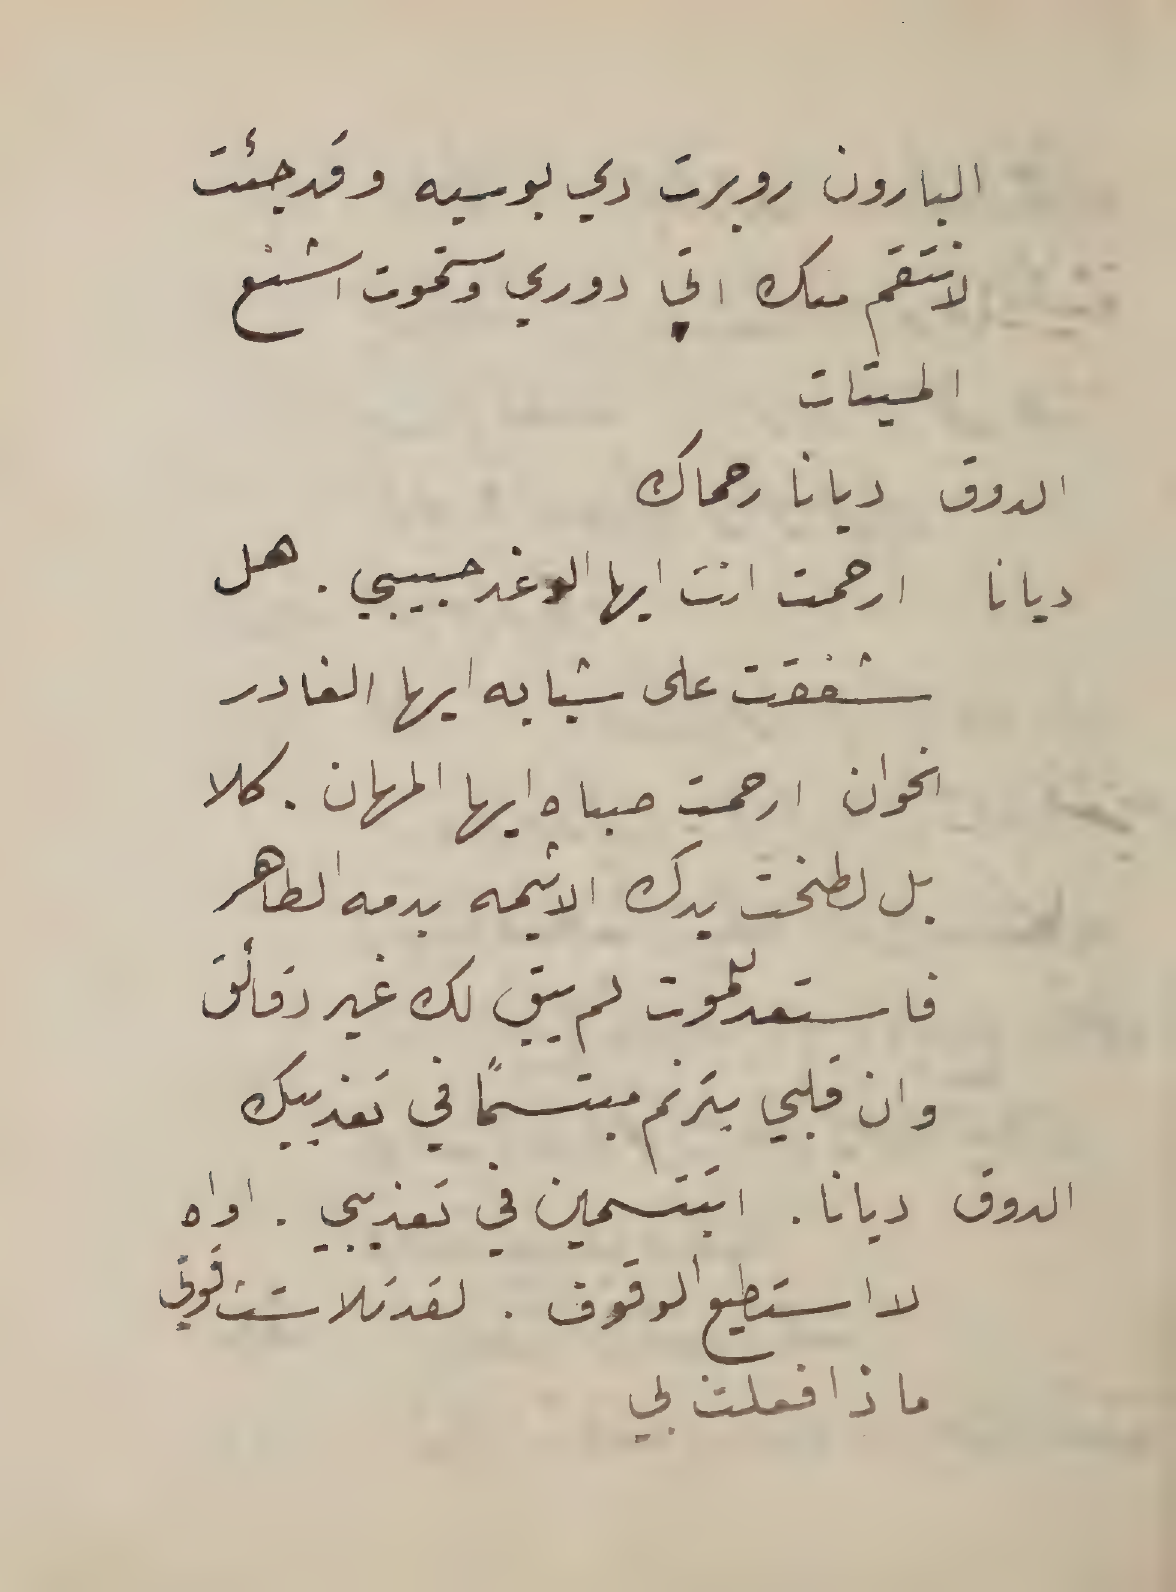 البارون روبرت دي بوسيه وقد جئت
لانتقم منك اتي دوري وستموت اشنع
الميتات
الدوق ديانا رحماك
ديانا ارحمت انت ايها الوغد حبيبي . هل
شفقت على شبابه ايها الغادر
الخوان ارحمت صباه ايها المهان . كلا
بل لطخت يدك الاثيمه بدمه الطاهر
فاستعد للموت لم يبق لك غير دقائق
وان قلبي يترنم مبتسمًا في تعذيبك
الدوق ديانا . ابتتسمين في تعذيبي . اواه
لا استطيع الوقوف . لقد تلاشت قوتي
ماذا فعلت لي